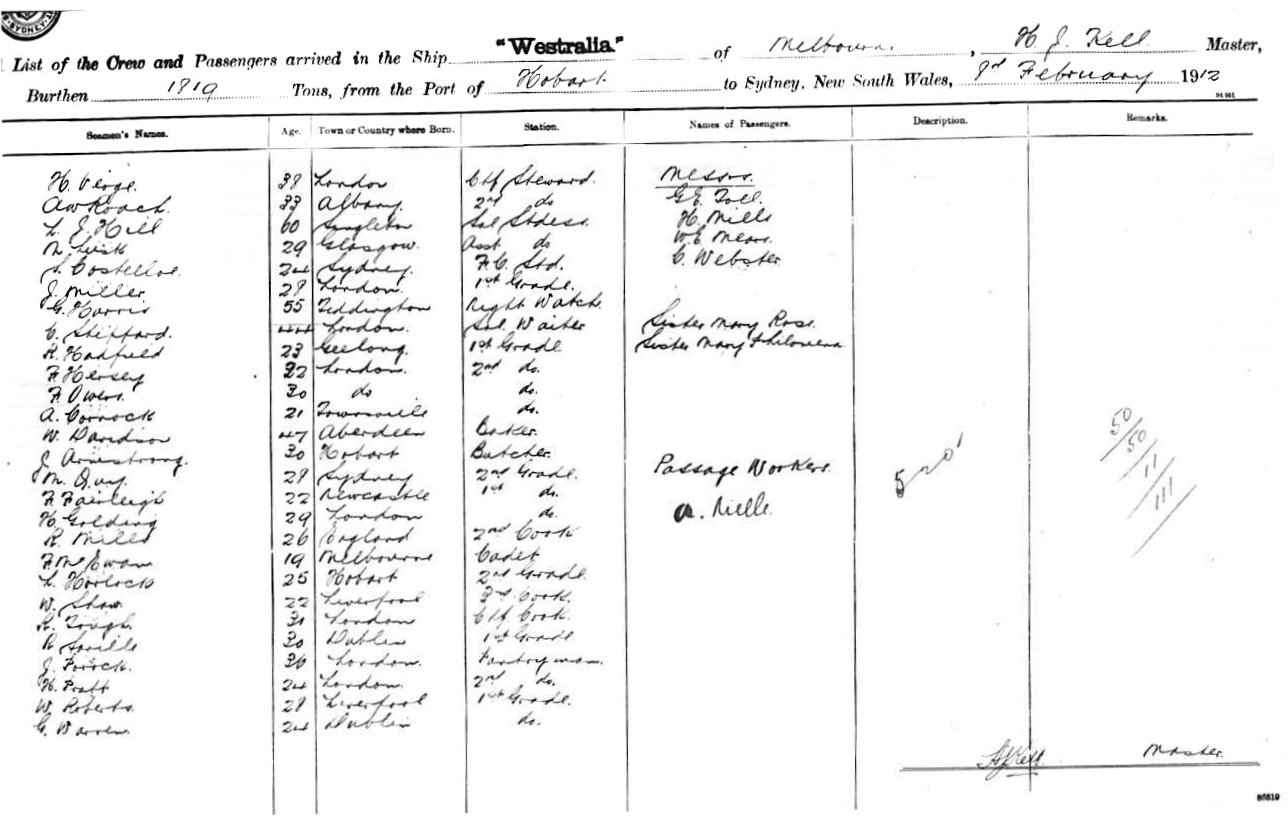 SYDNEY
List of the Crew and Passengers arrived in the Ship "Westralia." of Melbourne, H. J. Kell Master,
Burthen 1819 Tons, from the Port of Hobart to Sydney, New South Wales, February 1912
Seamen's Names. Age. Town or Country where Born. Station. Names of Passengers. Description. Remarks.
H. Verge. 38 London Chf Steward. Messrs.
AW Roach. 33 Albany. 2nd do G.E. Toll.
L. J. Hill 60 Singleton Sal Stdess. H. Mills
M. Lusk 29 Glasgow. Asst do W.E. Mears.
S. Costelloe. 24 Sydney. F.C. Std. C. Webster
J. Miller. 28 London. 1st Grade.
G. Harris 55 Teddington Night Watch.
C. Sheppard. 44 London. Sal. Waiter Sister Mary Rose.
R. Hadfield 23 Geelong. 1st Grade Sister Mary Philomena
F. Hersey 32 London. 2nd do.
F. Owers. 30 do do.
A. Cornock 21 Townsville do.
W. Davidson 47 Aberdeen Baker.
J. Armstrong. 30 Hobart Butcher. 50/50
M. Quay. 28 Sydney 2nd Grade. Passage Workers. 520' 11
F. Fairleigh 22 Newcastle 1st do. 111
H. Golding 29 London do. A. Nielle.
R. Mills 26 England 2nd Cook
F. McEwan 19 Melbourne Cadet
L. Horlock 25 Hobart 2nd Grade.
W. Shaw. 22 Liverpool 3rd Cook.
R. Tough. 31 London Chf Cook.
R. Saville 30 Dublin 1st Grade
J. 36 London. Pantryman.
H. Pratt 24 London. 2nd do.
W. Roberts. 28 Liverpool 1st Grade.
G. Warren. 24 Dublin do.
HJ Kell. Master.